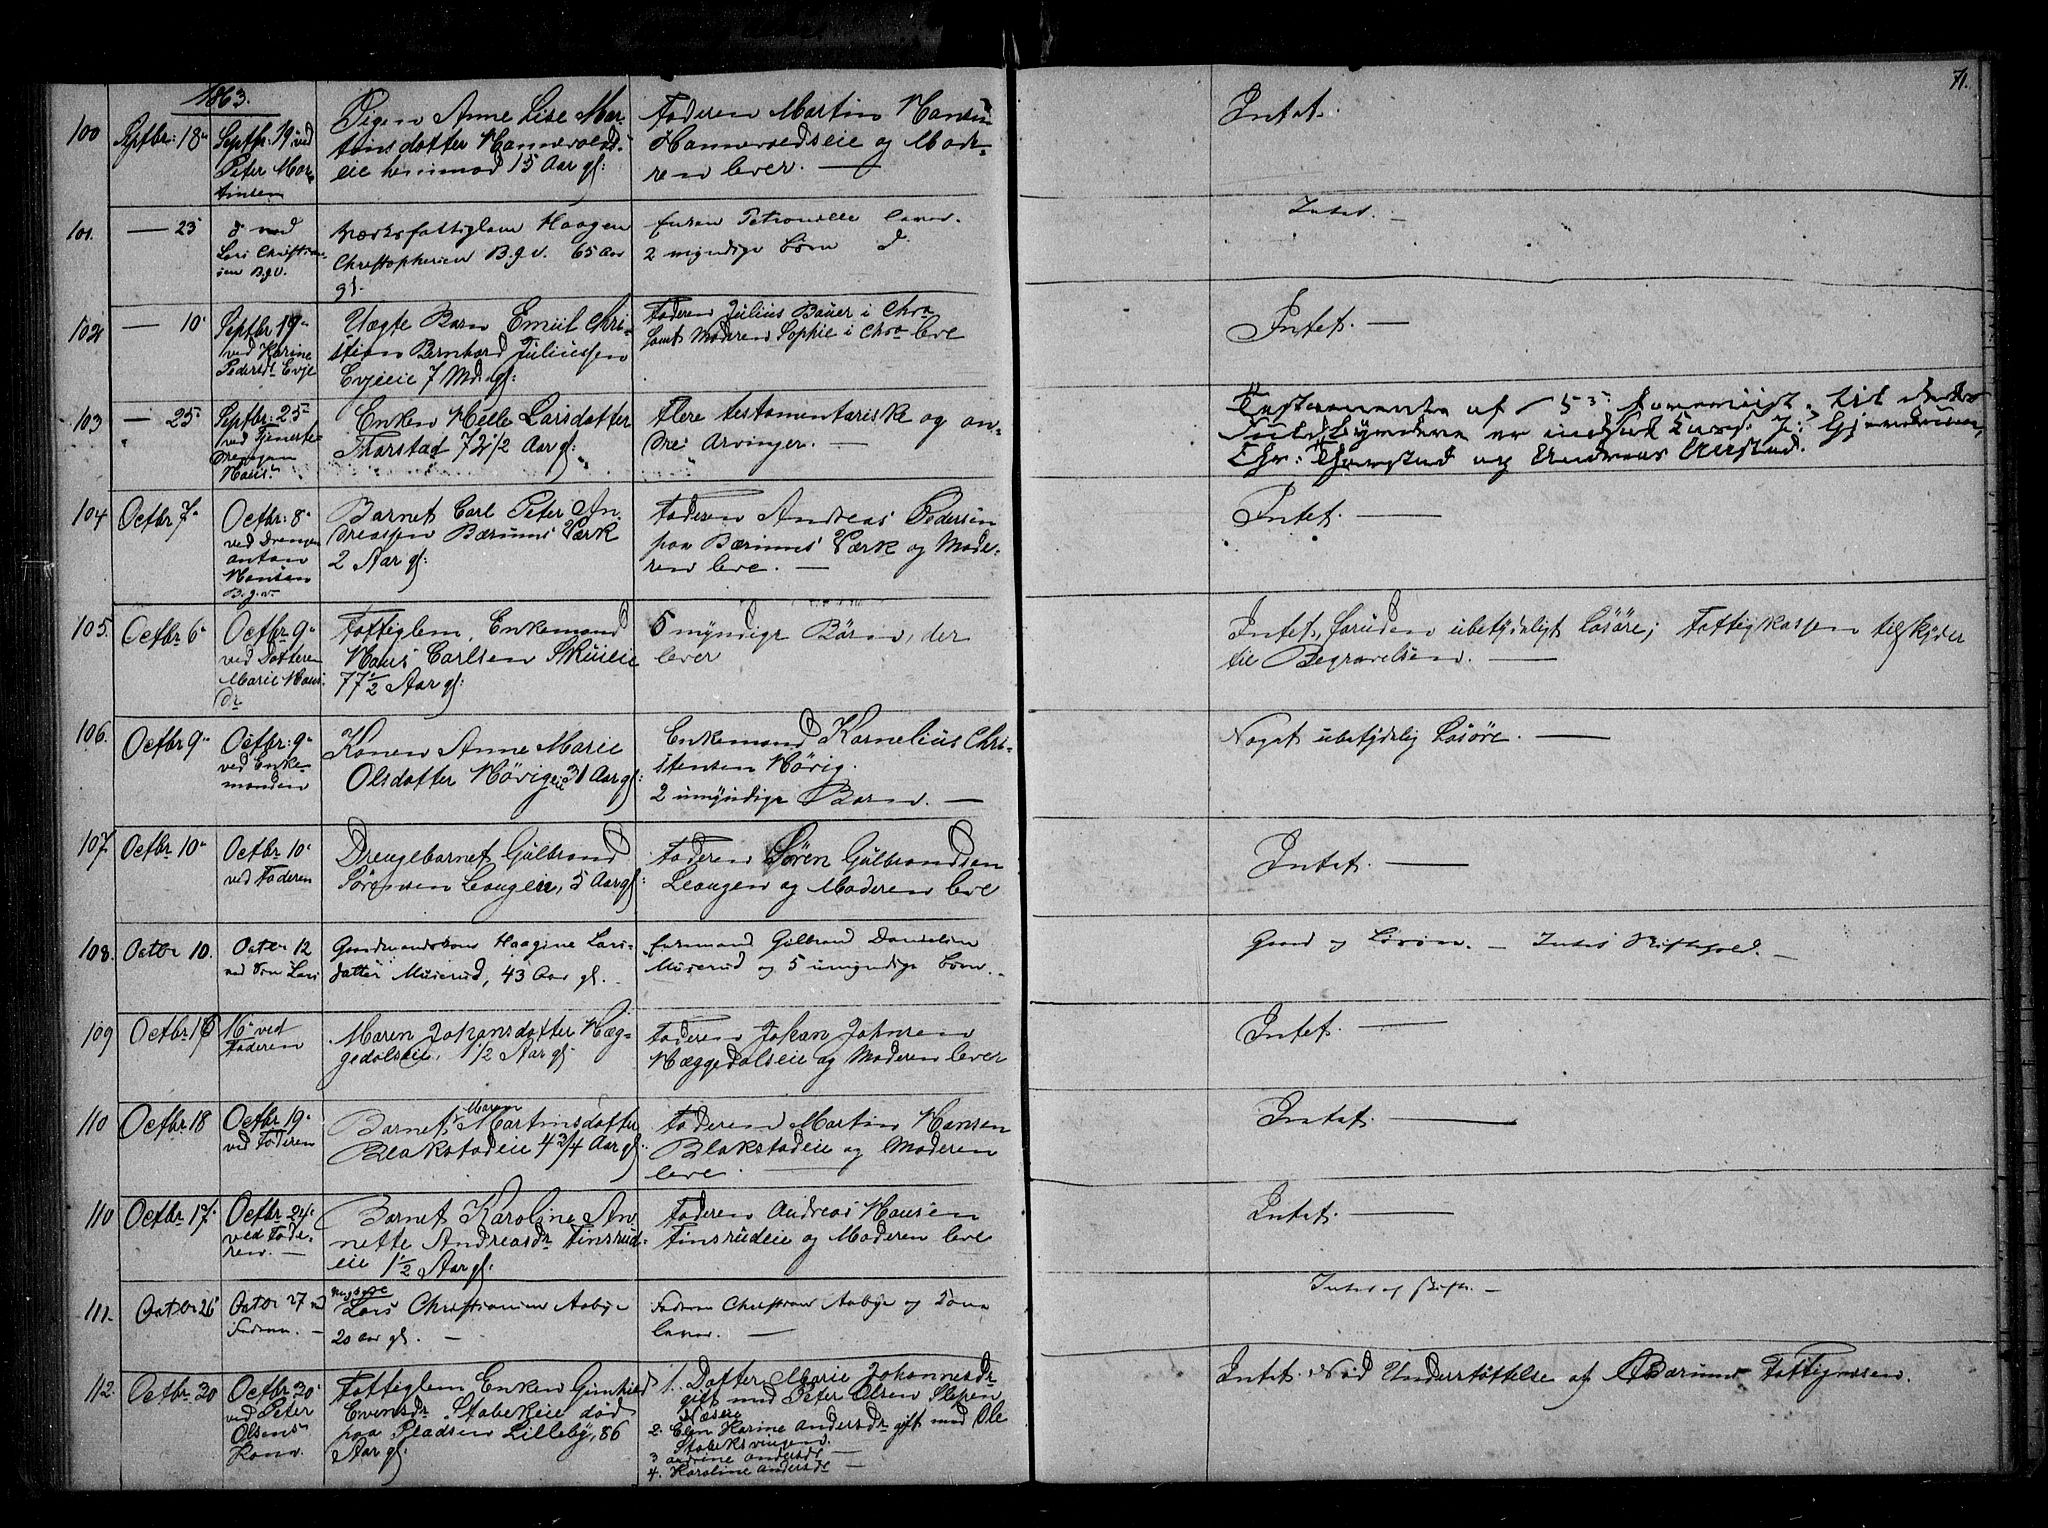 71.
1863.
100
Septbr: 18
Septbr: 19 ved
Peter Mar-
tinsen
Pigen Anne Lise Mar-
tinsdatter Hannevolds-
eie hjemmod 15 Aar gl:
Faderen Martin Hansen
Hannevoldseie og Mode-
ren lever. —
Intet.
101.
— 25
d ved
Lars Christian-
sen B.g.V.
Værksfattiglem Haagen
Christophersen B.g.V. 65 Aar
gl.
Enken Petronelle lever.
2 myndige Børn d.
Intet. —
102
— 10
Septbr 19
ved Karine
Pedersdt Evje
Uægte Barn Emiil Chri-
stian Bernhard Juliussen
Evjeeie 7 Md. gl:
Faderen Julius Bauer i Chra
samt Moderen Sophie i Chra leve
Intet. —
103
— 25
Septbr: 25
ved
Hans
Enken Helle Larsdatter
Thorstad 72 1/2 Aar gl:
Flere testamentariske og an-
dre Arvinger. —
Testamente af
er
Chr: Thorstad og Andreas
104
Octbr 7
Octbr: 8
ved Drengen
Anton
Hansen
B.g.V.
Barnet Carl Peter An-
dreassen Bærums Værk
2 Aar gl:
Faderen Andreas Pedersen
paa Bærums Værk og Mode-
ren leve. —
Intet. —
105.
Octbr 6
Octbr 9
ved Datteren
Marie Hans-
dr
Fattiglem, Enkemand
Hans Carlsen Skuieie
77 1/2 Aar gl:
5 myndige Børn, der
lever
Intet, foruden ubetydeligt Løsøre; Fattigkassen tilskyder
til Begravelsen. —
106.
Octbr 9
Octbr: 9
ved Enke-
manden
Konen Anne Marie
Olsdatter Høvigeie 31 Aar gl:
Enkemand Kornelius Chri-
stensen Høvig.
2 umyndige Børn. —
Noget ubetydelig Løsøre. —
107.
Octbr 10
Octbr 10
ved Faderen
Drengebarnet Gulbrand
Sørensen Levngen, 5 Aar gl:
Faderen Søren Gulbrandsen
Levngen og Moderen leve
Intet. —
108.
Octbr 10.
Octbr 12
ved Søn Lars
Gaardmandskone Haagine Lars-
datter Muserud, 43 Aar gl.
Enkemand Gulbrand Danielsen
Muserud og 5 umyndige Børn.
Gaard og Løsøre. — Intet Skiftehold. —
109
Octbr 16
16 ved
Faderen
Maren Johansdatter Hæg-
gedalseie, 1 1/2 Aar gl:
Faderen Johan Johnsen
Hæggedalseie og Moderen lever
Intet. —
110
Octbr 18
Octbr 19
ved Faderen
Barnet Maren Martinsdatter
Blakstadeie 4 3/4 Aar gl:
Faderen Martin Hansen
Blakstadeie og Moderen
leve.
Intet. —
110
Octbr 17
Octbr 24
ved Fade-
ren. —
Barnet Karoline An-
nette Andreasdr Tinsrud-
eie 1 1/2 Aar gl.
Faderen Andreas Hansen
Tinsrudeie og Moderen leve
Intet. —
111.
Octbr 26
Octbr 27 ved
Faderen. —
Lars Christiansen Aabye
20 Aar gl. —
Faderen Christian Aabye og Kone
lever. —
Intet
112.
Octbr 30
Octbr 30
ved Peter
Olsens
Kone
Fattiglem Enken Gunhild
Evensdr Stabekeie død
paa Pladsen Lilleby, 86
Aar gl.
1. Datter Marie Johannesdr
gift med Peter Olsen
Næseie
2. Elen Karine Andersdr gift med Ole
Stabeksvingen
3 Andrine Andersdr —
4. Karoline Andersdr
Intet. Nød Understøttelse af Bærums Fattigvæsen.